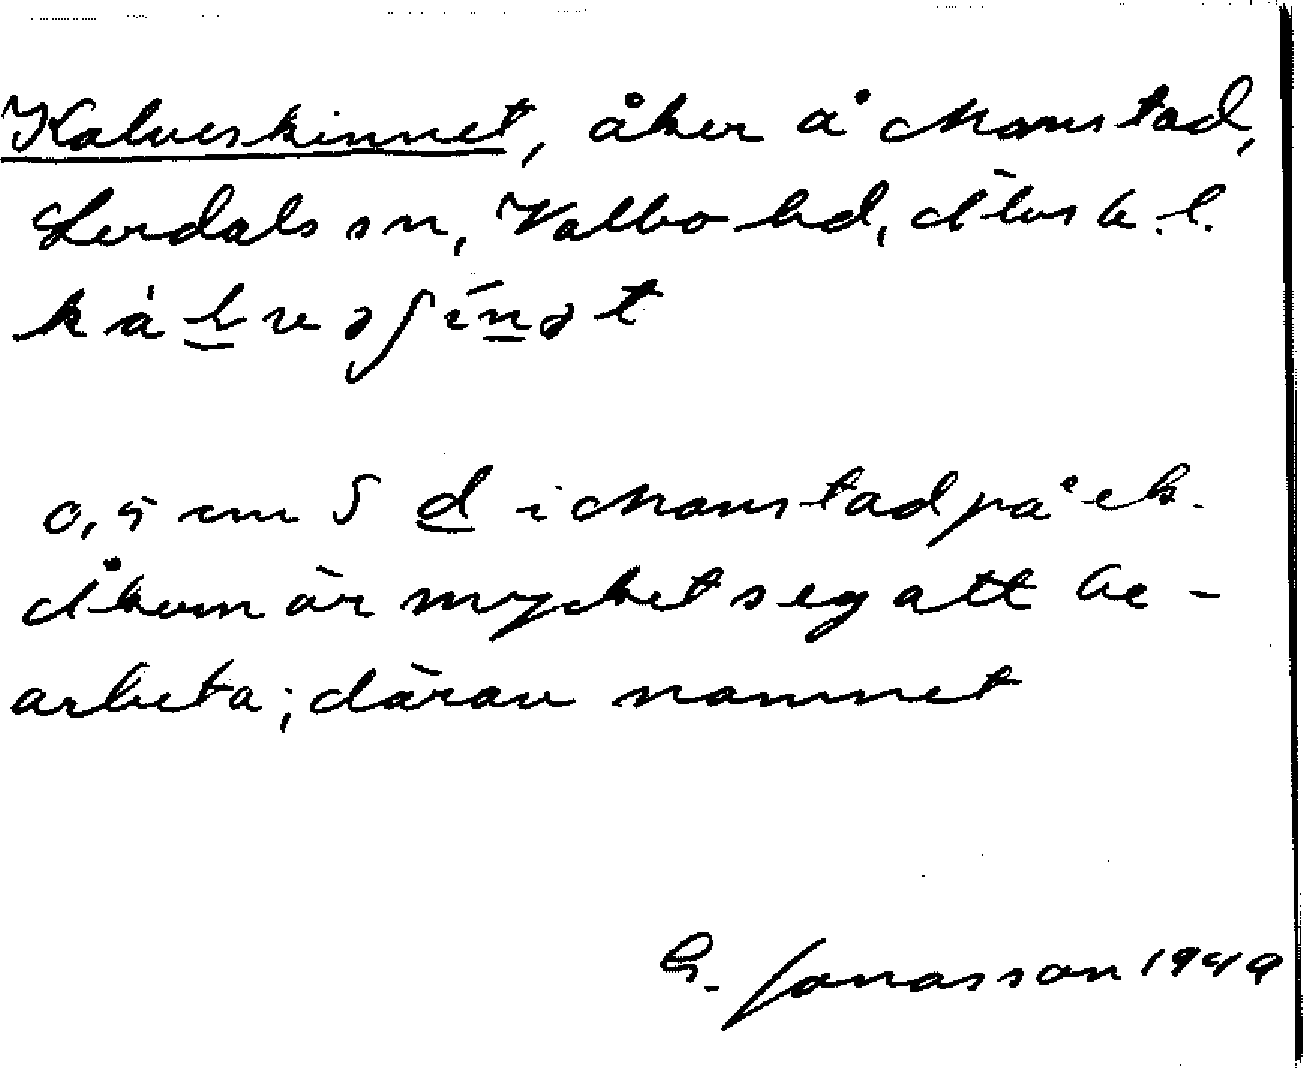 Kalveskinnet, åker å Manstad,
Lerdals sn, Valbo hd, Älvsb. l.
kàlvəʃīnət
0,5 cm S d i Manstad på ek.
Åkern är mycket seg att be-
arbeta; därav namnet
G. Jonasson 1949